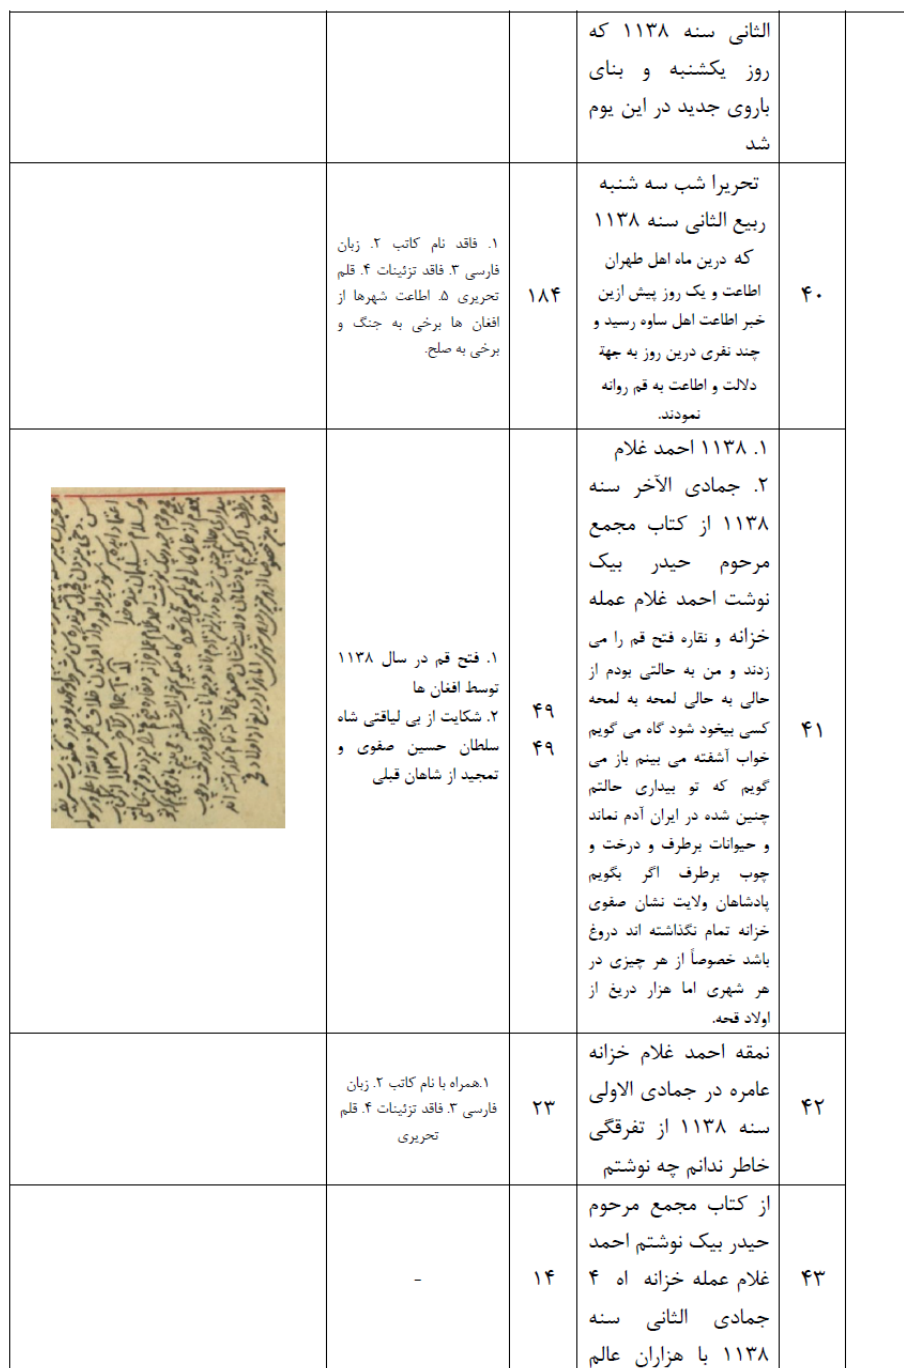 الثانی سنه ۱۱۳۸ که
روز یکشنبه و بنای
باروی جدید در این یوم
شد
۴۰
تحریرا شب سه شنبه
ربیع الثانی سنه ۱۱۳۸
که درین ماه اهل طهران
اطاعت و یک روز پیش ازین
خبر اطاعت اهل ساوه رسید و
چند نفری درین روز به جهة
دلالت و اطاعت به قم روانه
نمودند.
۱۸۴
۱. فاقد نام کاتب ۲. زبان
فارسی ۳. فاقد تزئینات ۴. قلم
تحریری ۵. اطاعت شهرها از
افغان ها برخی به جنگ و
برخی به صلح.
۴۱
۱. ۱۱۳۸ احمد غلام
۲. جمادی الآخر سنه
۱۱۳۸ از کتاب مجمع
مرحوم حیدر بیک
نوشت احمد غلام عمله
خزانه و نقاره فتح قم را می
زدند و من به حالتی بودم از
حالی به حالی لمحه به لمحه
کسی بیخود شود گاه می گویم
خواب آشفته می بینم باز می
گویم که تو بیداری حالتم
چنین شده در ایران آدم نماند
و حیوانات برطرف و درخت و
چوب برطرف اگر بگویم
پادشاهان ولایت نشان صفوی
خزانه تمام نگذاشته اند دروغ
باشد خصوصاً از هر چیزی در
هر شهری اما هزار دریغ از
اولاد قحه.
۴۹
۴۹
۱. فتح قم در سال ۱۱۳۸
توسط افغان ها
۲. شکایت از بی لیاقتی شاه
سلطان حسین صفوی و
تمجید از شاهان قبلی
۴۲
نمقه احمد غلام خزانه
عامره در جمادی الاولی
سنه ۱۱۳۸ از تفرقگی
خاطر ندانم چه نوشتم
۲۳
۱.همراه با نام کاتب ۲. زبان
فارسی ۳. فاقد تزئینات ۴. قلم
تحریری
۴۳
از کتاب مجمع مرحوم
حیدر بیک نوشتم احمد
غلام عمله خزانه اه ۴
جمادی الثانی سنه
۱۱۳۸ با هزاران عالم
۱۴
-